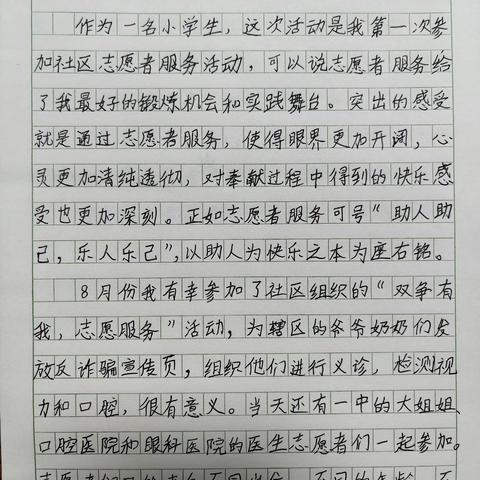 作为一名小学生，这次活动是我第一次参
加社区志愿者服务活动，可以说志愿者服务给
了我最好的锻炼机会和实践舞台。突出的感受
就是通过志愿者服务，使得眼界更加开阔，心
灵更加清纯透彻，对奉献过程中得到的快乐感
受也更加深刻。正如志愿者服务可号“助人助
己，乐人乐己”，以助人为快乐之本为座右铭。
8月份我有幸参加了社区组织的“双争有
我，志愿服务”活动，为辖区的爷爷奶奶们发
放反诈骗宣传页，组织他们进行义诊，检测视
力和口腔，很有意义。当天还有一中的大姐姐、
口腔医院和眼科医院的医生志愿者们一起参加。